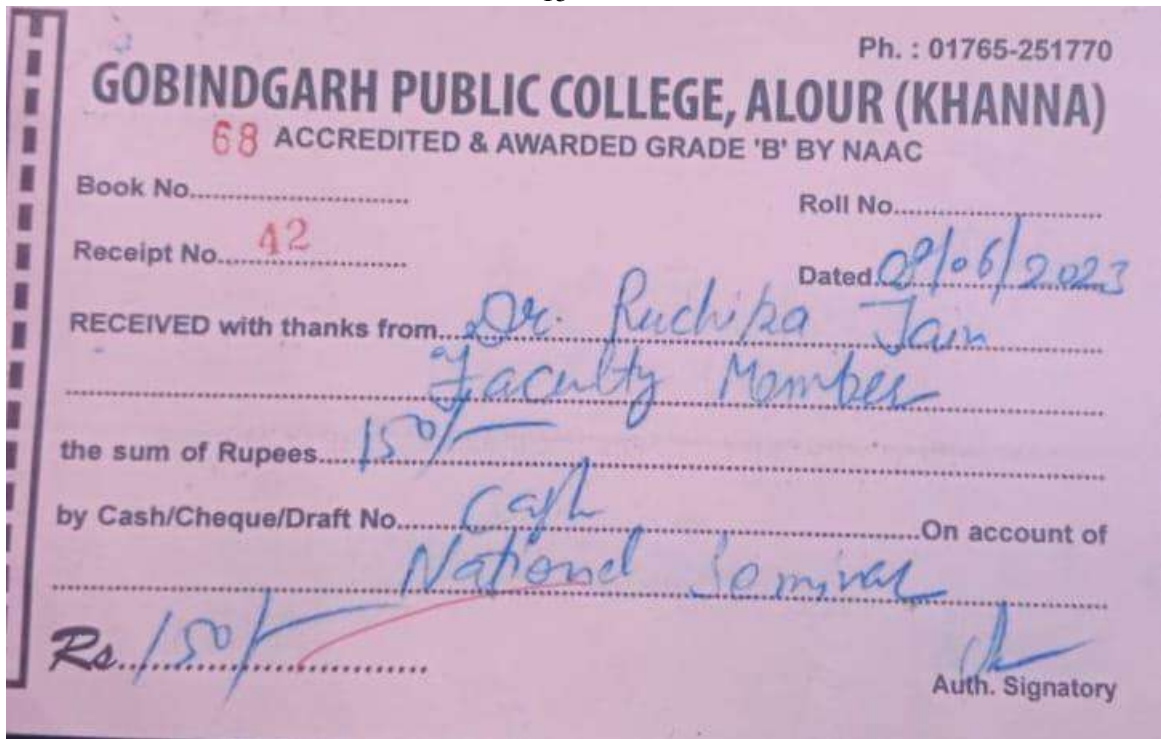 Ph. : 01765-251770
GOBINDGARH PUBLIC COLLEGE, ALOUR (KHANNA)
68 ACCREDITED & AWARDED GRADE 'B' BY NAAC
Book No..............................
Roll No..............................
Receipt No. 42
Dated 09/06/2023
RECEIVED with thanks from Dr. Ruchika Jain
Faculty Member
the sum of Rupees 150/-
by Cash/Cheque/Draft No. Cash On account of
National Seminar
Rs. 150/-
Auth. Signatory